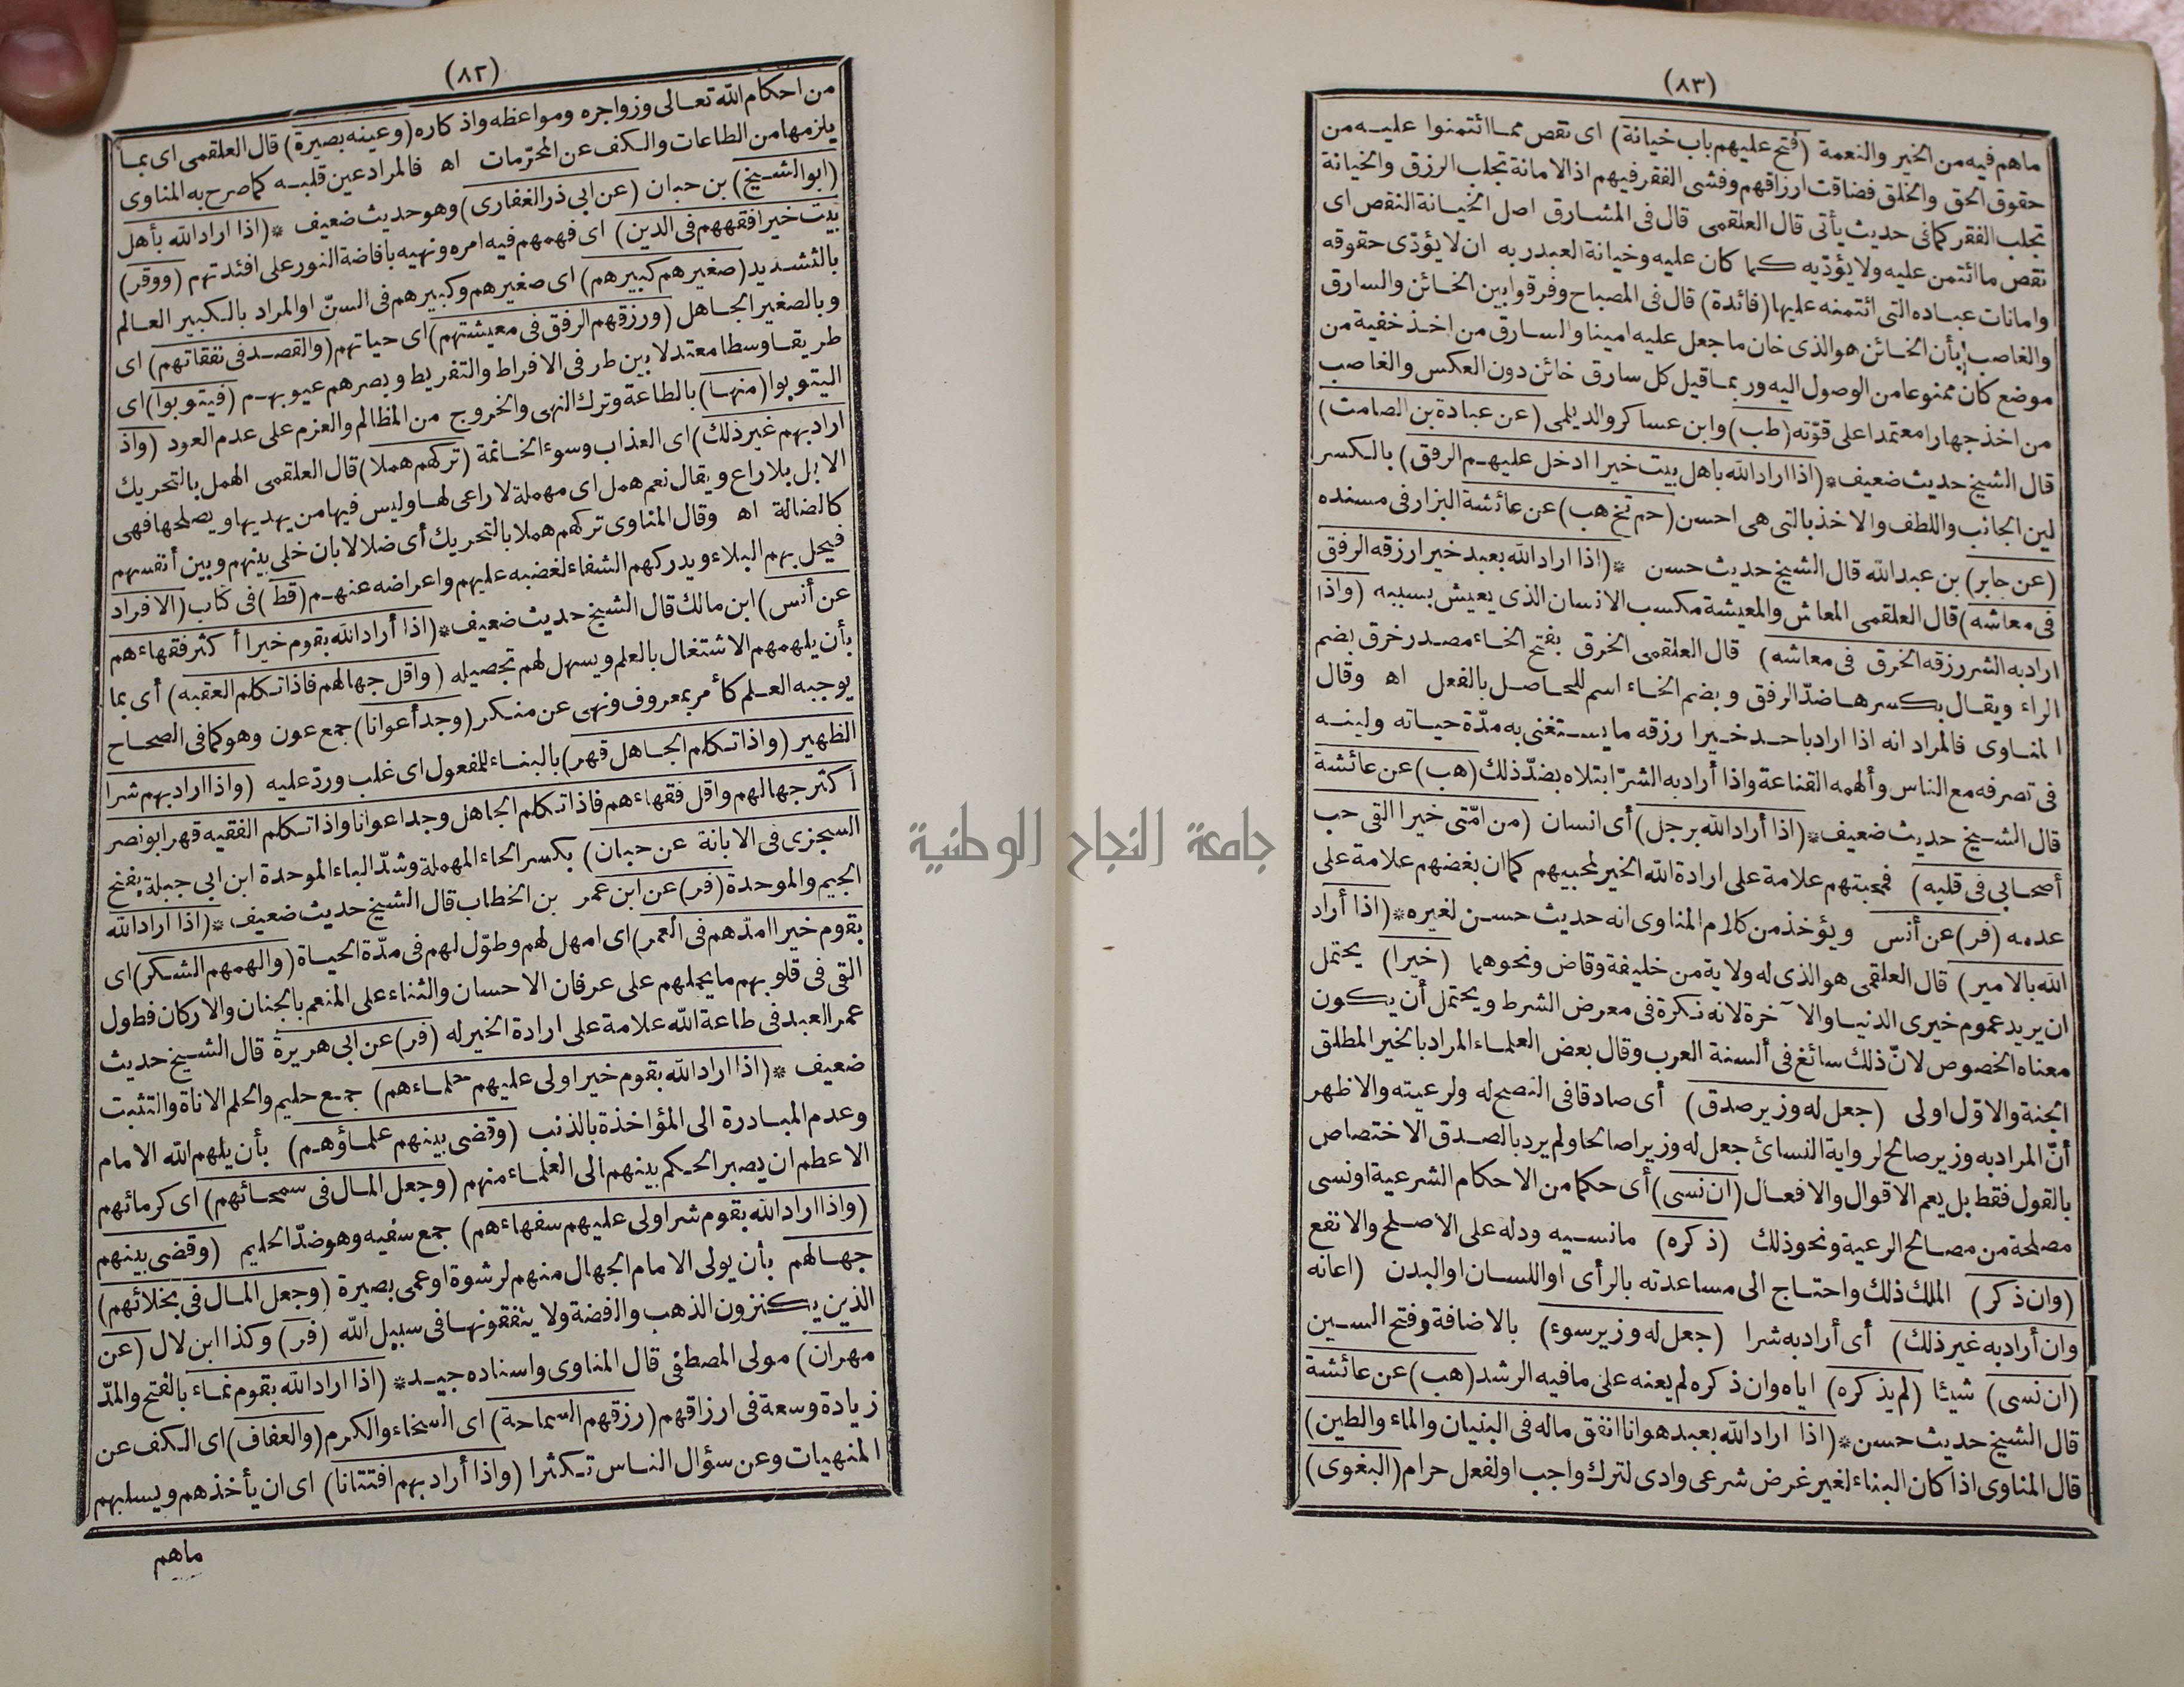 (٨٢)
من احكام الله تعالى وزواجره ومواعظه واذكاره (وعينه بصيرة) قال العلقمى اى بما
يلزمها من الطاعات والكف عن المحرّمات اه فالمراد عين قلبه كما صرح به المناوى
(ابو الشيخ) بن حبان (عن ابى ذر الغفارى) وهو حديث ضعيف * (اذا اراد الله بأهل
بيت خيرا فقههم فى الدين) اى فهمهم فيه امره ونهيه بافاضة النور على افئدتهم (ووقر)
بالتشديد (صغيرهم كبيرهم) اى صغيرهم وكبيرهم فى السنّ او المراد بالكبير العالم
وبالصغير الجاهل (ورزقهم الرفق فى معيشتهم) اى حياتهم (والقصد فى نفقاتهم) اى
طريقا وسطا معتدلا بين طرفى الافراط والتفريط وبصرهم عيوبهم (فيتوبوا) اى
ليتوبوا (منها) بالطاعة وترك النهى والخروج من المظالم والعزم على عدم العود (واذا
اراد بهم غير ذلك) اى العذاب وسوء الخاتمة (تركهم هملا) قال العلقمى الهمل بالتحريك
الابل بلا راع ويقال نعم همل اى مهملة لا راعى لها وليس فيها من يهديها ويصلحها فهى
كالضالة اه وقال المناوى تركهم هملا بالتحريك أى ضلالا بان خلى بينهم وبين أنفسهم
فيحل بهم البلاء ويدركهم الشقاء لغضبه عليهم واعراضه عنهم (قط) فى كتاب (الافراد
عن أنس) ابن مالك قال الشيخ حديث ضعيف * (اذا أراد الله بقوم خيرا أكثر فقهاءهم
بأن يلهمهم الاشتغال بالعلم ويسهل لهم تحصيله (واقل جهالهم فاذا تكلم الفقيه) أى بما
يوجبه العلم كأمر بمعروف ونهى عن منكر (وجد أعوانا) جمع عون وهو كما فى الصحاح
الظهير (واذا تكلم الجاهل قهر) بالبناء للمفعول اى غلب وردّ عليه (واذا اراد بهم شرا
أكثر جهالهم واقل فقهاءهم فاذا تكلم الجاهل وجد اعوانا واذا تكلم الفقيه قهر ابو نصر
السجزى فى الابانة عن حبان) بكسر الحاء المهملة وشدّ الباء الموحدة ابن ابى جبلة بفتح
الجيم والموحدة (فر) عن ابن عمر بن الخطاب قال الشيخ حديث ضعيف * (اذا اراد الله
بقوم خيرا امدّهم فى العمر) اى امهل لهم وطوّل لهم فى مدّة الحياة (والهمهم الشكر) اى
القى فى قلوبهم ما يحملهم على عرفان الاحسان والثناء على المنعم بالجنان والاركان فطول
عمر العبد فى طاعة الله علامة على ارادة الخير له (فر) عن ابى هريرة قال الشيخ حديث
ضعيف * (اذا اراد الله بقوم خيرا ولى عليهم حلماءهم) جمع حليم والحلم الاناة والتثبت
وعدم المبادرة الى المؤاخذة بالذنب (وقضى بينهم علماؤهم) بأن يلهم الله الامام
الاعظم ان يصير الحكم بينهم الى العلماء منهم (وجعل المال فى سمحائهم) اى كرمائهم
(واذا اراد الله بقوم شرا ولى عليهم سفهاءهم) جمع سفيه وهو ضدّ الحليم (وقضى بينهم
جهالهم بأن يولى الامام الجهال منهم لرشوة او عمى بصيرة (وجعل المال فى بخلائهم)
الذين يكنزون الذهب والفضة ولا ينفقونها فى سبيل الله (فر) وكذا ابن لال (عن
مهران) مولى المصطفى قال المناوى واسناده جيد * (اذا اراد الله بقوم نماء بالفتح والمدّ
زيادة وسعة فى ارزاقهم (رزقهم السماحة) اى السخاء والكرم (والعفاف) اى الكف عن
المنهيات وعن سؤال الناس تكثرا (واذا أراد بهم افتتانا) اى ان يأخذهم ويسلبهم
ماهم
(٨٣)
ماهم فيه من الخير والنعمة (فتح عليهم باب خيانة) اى نقص مما ائتمنوا عليه من
حقوق الحق والخلق فضاقت ارزاقهم وفشى الفقر فيهم اذ الامانة تجلب الرزق والخيانة
تجلب الفقر كما فى حديث يأتى قال العلقمى قال فى المشارق اصل الخيانة النقص اى
نقص ما ائتمن عليه ولا يؤدّيه كما كان عليه وخيانة العبد ربه ان لا يؤدّى حقوقه
وامانات عباده التى ائتمنه عليها (فائدة) قال فى المصباح وفرقوا بين الخائن والسارق
والغاصب بأن الخائن هو الذى خان ما جعل عليه امينا والسارق من اخذ خفية من
موضع كان ممنوعا من الوصول اليه وربما قيل كل سارق خائن دون العكس والغاصب
من اخذ جهارا معتمدا على قوّته (طب) وابن عساكر والديلمى (عن عبادة بن الصامت)
قال الشيخ حديث ضعيف * (اذا اراد الله باهل بيت خيرا ادخل عليهم الرفق) بالكسر
لين الجانب واللطف والاخذ بالتى هى احسن (حم تخ هب) عن عائشة البزار فى مسنده
(عن جابر) بن عبد الله قال الشيخ حديث حسن * (اذا اراد الله بعبد خيرا رزقه الرفق
فى معاشه) قال العلقمى المعاش والمعيشة مكسب الانسان الذى يعيش بسببه (واذا
اراد به الشر رزقه الخرق فى معاشه) قال العلقمى الخرق بفتح الخاء مصدر خرق بضم
الراء ويقال بكسرها ضدّ الرفق وبضم الخاء اسم للحاصل بالفعل اه وقال
المناوى فالمراد انه اذا اراد باحد خيرا رزقه ما يستغنى به مدّة حياته ولينه
فى تصرفه مع الناس وألهمه القناعة واذا أراد به الشرّ ابتلاه بضدّ ذلك (هب) عن عائشة
قال الشيخ حديث ضعيف * (اذا أراد الله برجل) أى انسان (من امّتى خيرا القى حب
أصحابى فى قلبه) فمحبتهم علامة على ارادة الله الخير لمحبيهم كما ان بغضهم علامة على
عدمه (فر) عن أنس ويؤخذ من كلام المناوى انه حديث حسن لغيره * (اذا أراد
الله بالامير) قال العلقمى هو الذى له ولاية من خليفة وقاض ونحوهما (خيرا) يحتمل
ان يريد عموم خيرى الدنيا والآخرة لانه نكرة فى معرض الشرط ويحتمل أن يكون
معناه الخصوص لانّ ذلك سائغ فى ألسنة العرب وقال بعض العلماء المراد بالخير المطلق
الجنة والاوّل اولى (جعل له وزير صدق) أى صادقا فى النصح له ولرعيته والاظهر
أنّ المراد به وزير صالح لرواية النسائى جعل له وزيرا صالحا ولم يرد بالصدق الاختصاص
بالقول فقط بل يعم الاقوال والافعال (ان نسى) أى حكما من الاحكام الشرعية او نسى
مصلحة من مصالح الرعية ونحو ذلك (ذكره) ما نسيه ودله على الاصلح والانفع
(وان ذكر) الملك ذلك واحتاج الى مساعدته بالرأى او اللسان او البدن (اعانه
وان أراد به غير ذلك) أى أراد به شرا (جعل له وزير سوء) بالاضافة وفتح السين
(ان نسى) شيئا (لم يذكره) اياه وان ذكره لم يعنه على ما فيه الرشد (هب) عن عائشة
قال الشيخ حديث حسن * (اذا اراد الله بعبد هوانا انفق ماله فى البنيان والماء والطين)
قال المناوى اذا كان البناء لغير غرض شرعى وادى لترك واجب او لفعل حرام (البغوى)
جامعة النجاح الوطنية